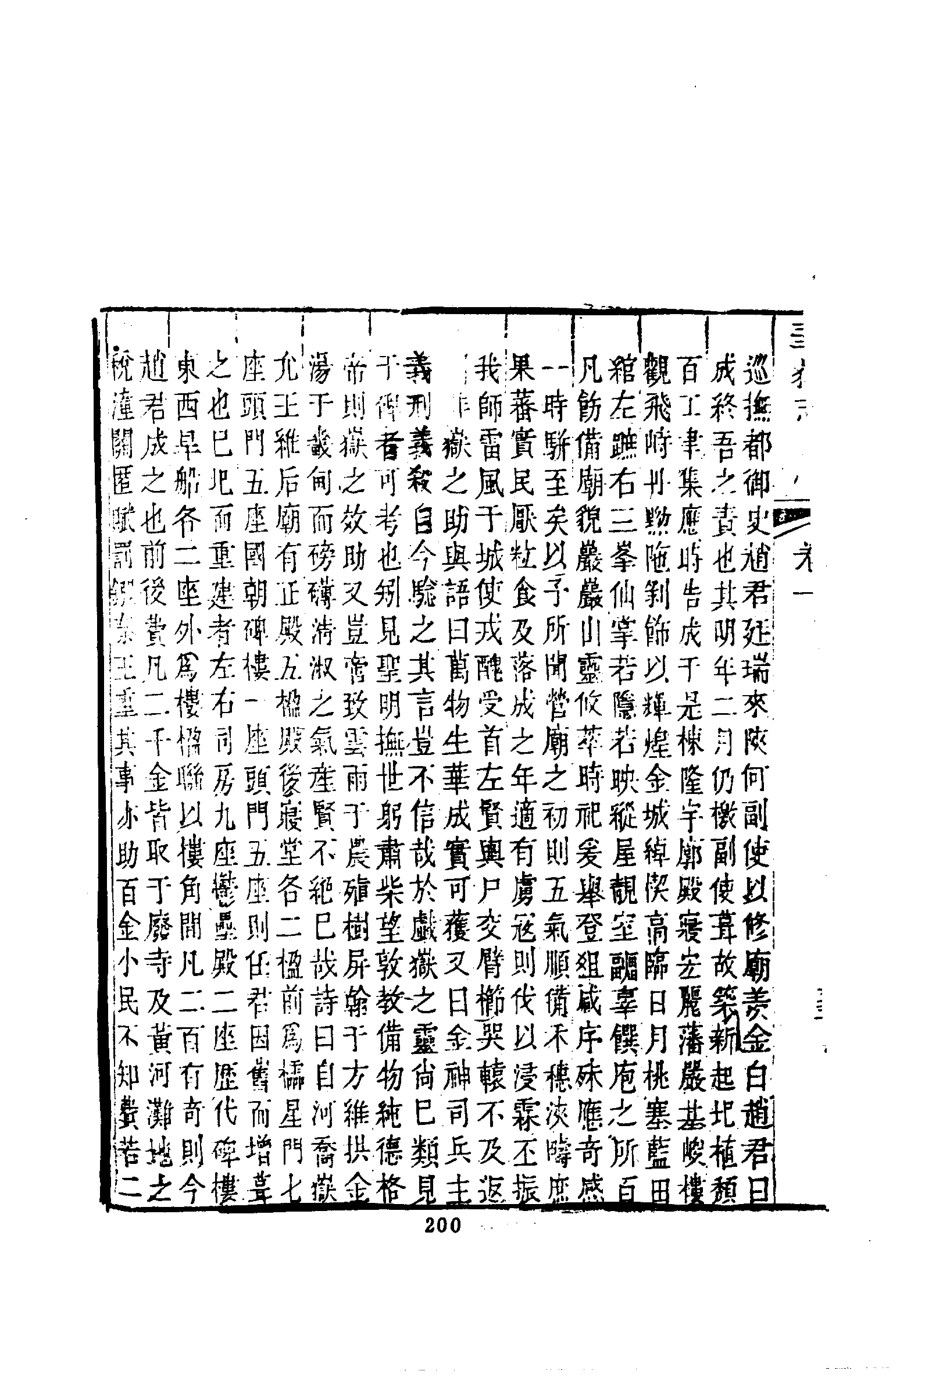 卷一
巡撫都御史趙君廷瑞來陝何副使以修廟羨金白趙君曰
成終吾之責也其明年二月仍檄副使葺故築新起圮植頹
百工聿集應時告成于是棟隆宇廓殿寢宏麗藩嚴基峻樓
觀飛峙丹黝陁剝飾以輝煌金城綽楔高臨日月桃塞藍田
綰左蹠右三峯仙掌若隱若映縱屋覩室䣛辜饌庖之所百
凡飭備廟貌嚴嚴山靈攸萃時祀爰舉登俎咸序休應奇感
一時駢至矣以予所聞營廟之初則五氣順備禾穗浹疇庶
果蕃實民厭粒食及落成之年適有虜寇則伐以浸霖丕振
我師雷風于城使戎醜受首左賢輿尸交臂櫛哭轅不及返
非嶽之助與語曰萬物生華成實可穫又曰金神司兵主
義刑義殺自今驗之其言豈不信哉於戲嶽之靈尚巳類見
于碑者可考也矧見聖明撫世躬肅柴望敦教備物純德格
帝則嶽之效助又豈啻致雲雨于農殖樹屏翰于方維拱金
湯于畿甸而磅礴清淑之氣產賢不絕巳哉詩曰自河喬嶽
允王維后廟有正殿五楹殿後寢堂各二楹前爲櫺星門七
座頭門五座國朝碑樓一座頭門五座則任君因舊而增葺
之也巳圮而重建者左右司房九座鬱壘殿二座歷代碑樓
東西旱船各二座外爲樓楹聯以樓角間凡二百有奇則今
趙君成之也前後費凡二千金皆取于廢寺及黃河灘地之
稅潼關匿賦罰鍰秦王重其事亦助百金小民不知費若二
200